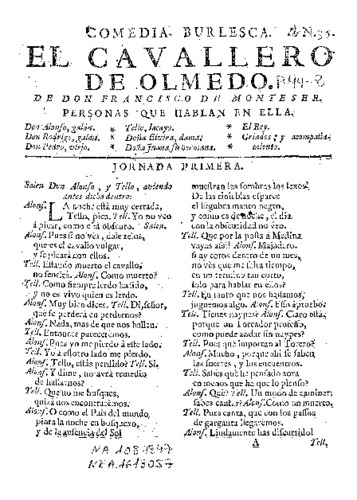 COMEDIA BURLESCA. N. 35.
EL CAVALLERO
DE OLMEDO.
DE DON FRANCISCO DE MONTESER.
PERSONAS QUE HABLAN EN ELLA.
Don Alonso, galán. * Tello, lacayo. * El Rey.
Don Rodrigo, galan. * Doña Elvira, dama. * Criados, y acompaña-
Don Pedro, viejo. * Doña Juana, su hermana. miento.
JORNADA PRIMERA.
Salen Don Alonso, y Tello, aviendo
antes dicho dentro:
Alons. LA noche está muy cerrada,
Tello, pica. Tell. Yo no veo
à picar, como está obscura. Alons.
Pues si no ves, dale zelos,
que es el cavallo vulgar,
y se picará con ellos.
Tell. Estando muerto el cavallo,
no sentirà. Alons. Como muerto?
Tell. Como siempre lerdo ha sido,
y no es vivo quien es lerdo.
Alons. Muy bien dices. Tell. Di, señor,
que se perderà en perdernos?
Alons. Nada, mas de que nos hallen.
Tell. Entonces pareceremos.
Alons. Pues yo me pierdo à este lado.
Tell. Yo à essotro lado me pierdo.
Alons. Tello, estás perdido? Tell. Si.
Alons. Y dime, no avrà remedio
de hallarnos?
Tell. Que no me busques,
quizà nos encontrarèmos.
Alons. O como el Pais del mundo,
pinta la noche en bosquexo,
y de la ausencia del Sol
muestran las sombras los lexos.
De las tinieblas esparce
el lugubre manto negro,
y como es de noche, el dia
con la obscuridad no veo.
Tell. Que por la posta à Medina
vayas assi! Alons. Majadero,
si ay toros dentro de un mes,
no vès que me falta tiempo,
en un termino tan corto,
solo para hablar en ellos?
Tell. En tanto que nos hallamos,
juguemos algo. Alons. Esso apruebo:
Tell. Tienes naypes? Alons. Claro està,
porque un Toreador professo,
como puede andar sin naypes?
Tell. Pues què importan al Torero?
Alons. Mucho, porque ahi se saben
las suertes, y los encuentros.
Tell. Sabes què he pensado aora
con menos que ha que lo pienso?
Alons. Què? Tell. Un modo de caminar:
sabes cantar? Alons. Como un muerto.
Tell. Pues canta, que con los passos
de garganta llegarèmos.
Alons. Lindamente las discurrido!
A Tell.
NA 1081849
NEA 1613057